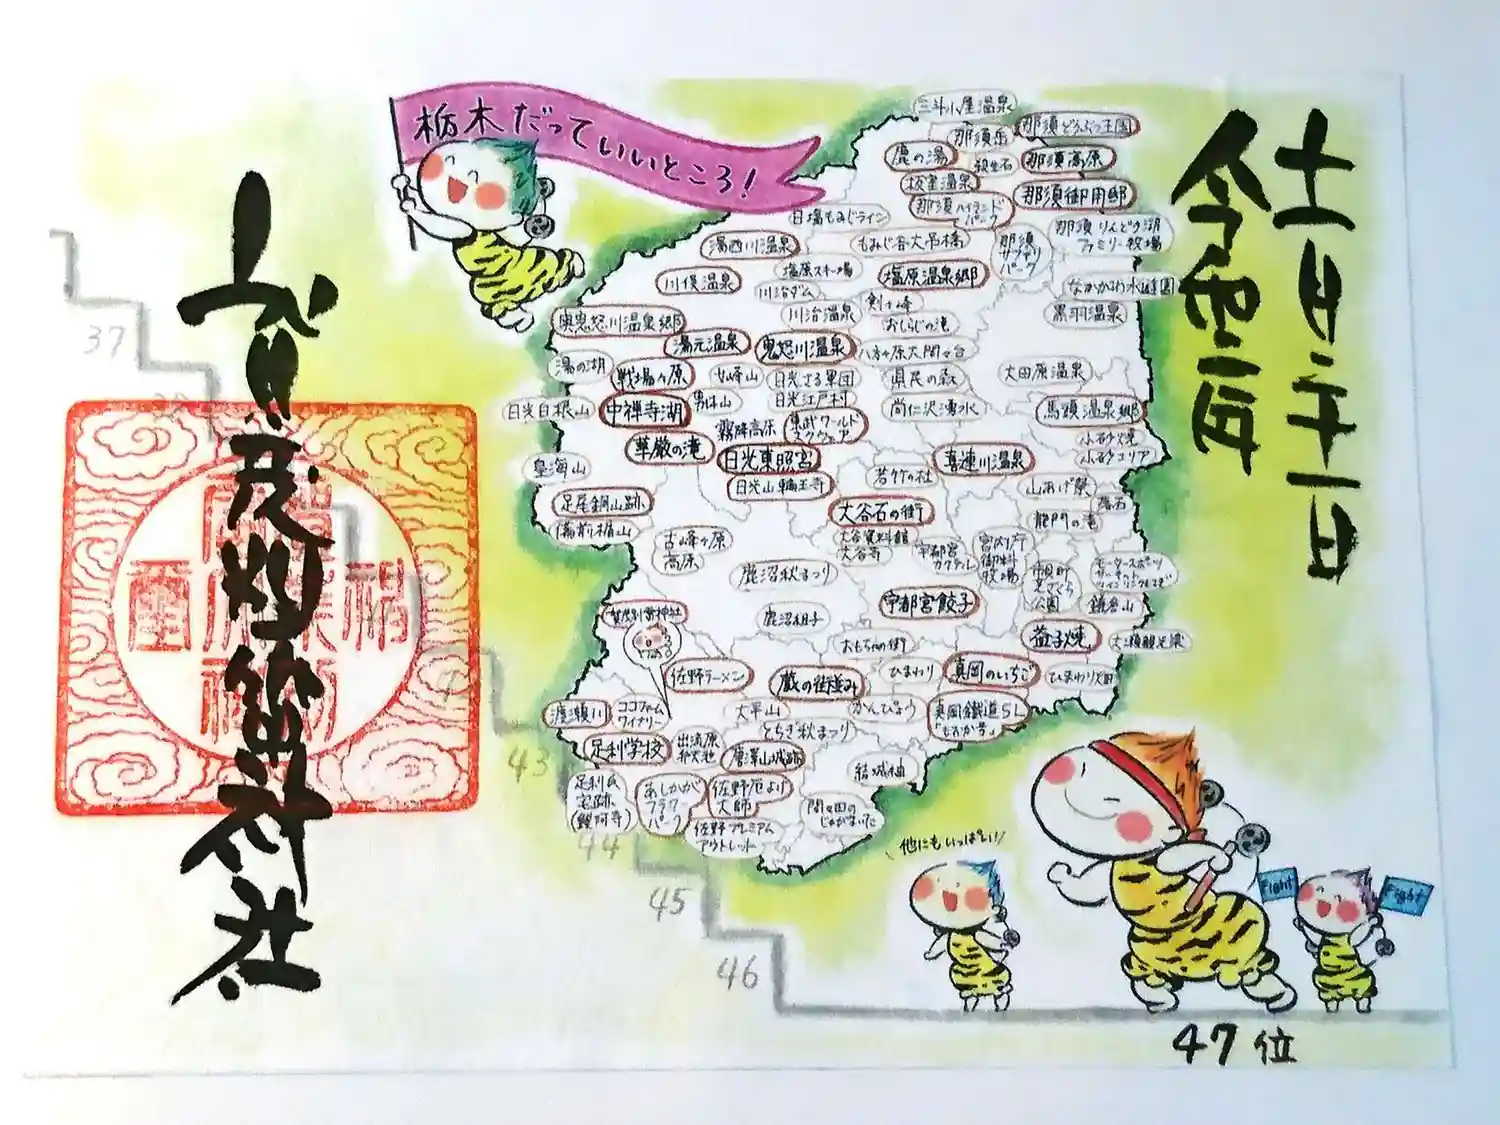 栃木だっていいところ!
三斗小屋温泉
那須岳
那須どうぶつ王国
鹿の湯
殺生石
那須高原
板室温泉
那須ハイランドパーク
那須御用邸
日塩もみじライン
湯西川温泉
もみじ谷大吊橋
那須サファリパーク
那須りんどう湖
ファミリー牧場
川俣温泉
塩原スキー場
塩原温泉郷
なかがわ水遊園
川治ダム
川治温泉
剣ヶ峰
おしらじの滝
黒羽温泉
奥鬼怒川温泉郷
湯元温泉
鬼怒川温泉
八方ヶ原大間々台
湯の湖
戦場ヶ原
女峰山
日光さる軍団
県民の森
大田原温泉
日光白根山
中禅寺湖
男体山
日光江戸村
尚仁沢湧水
馬頭温泉郷
霧降高原
東武ワールド
スクウェア
小砂焼
小砂ユリア
華厳の滝
日光東照宮
喜連川温泉
皇海山
日光山輪王寺
若竹の杜
山あげ祭
足尾銅山跡
大谷石の街
龍門の滝
備前楯山
古峰ヶ原
高原
大谷資料館
大谷寺
宇都宮
カクテル
宮内庁
御料
牧場
鹿沼秋まつり
市貝町
芝ざくら
公園
鎌倉山
賀茂別雷神社
鹿沼組子
宇都宮餃子
益子焼
おもちゃの街
佐野ラーメン
蔵の街並み
ひまわり
真岡のいちご
渡瀬川
ココファーム
ワイナリー
大平山
かんぴょう
真岡鐵道SL
「もおか号」
足利学校
出流原
弁天池
とちぎ秋まつり
唐澤山城跡
結城紬
足利氏
宅跡
(鑁阿寺)
あしかが
フラワー
パーク
佐野厄よけ
大師
間々田の
じゃがまいた
佐野プレミアム
アウトレット
他にもいっぱい!
Fight
Fight
37
43
44
45
46
47位
賀茂別雷神社